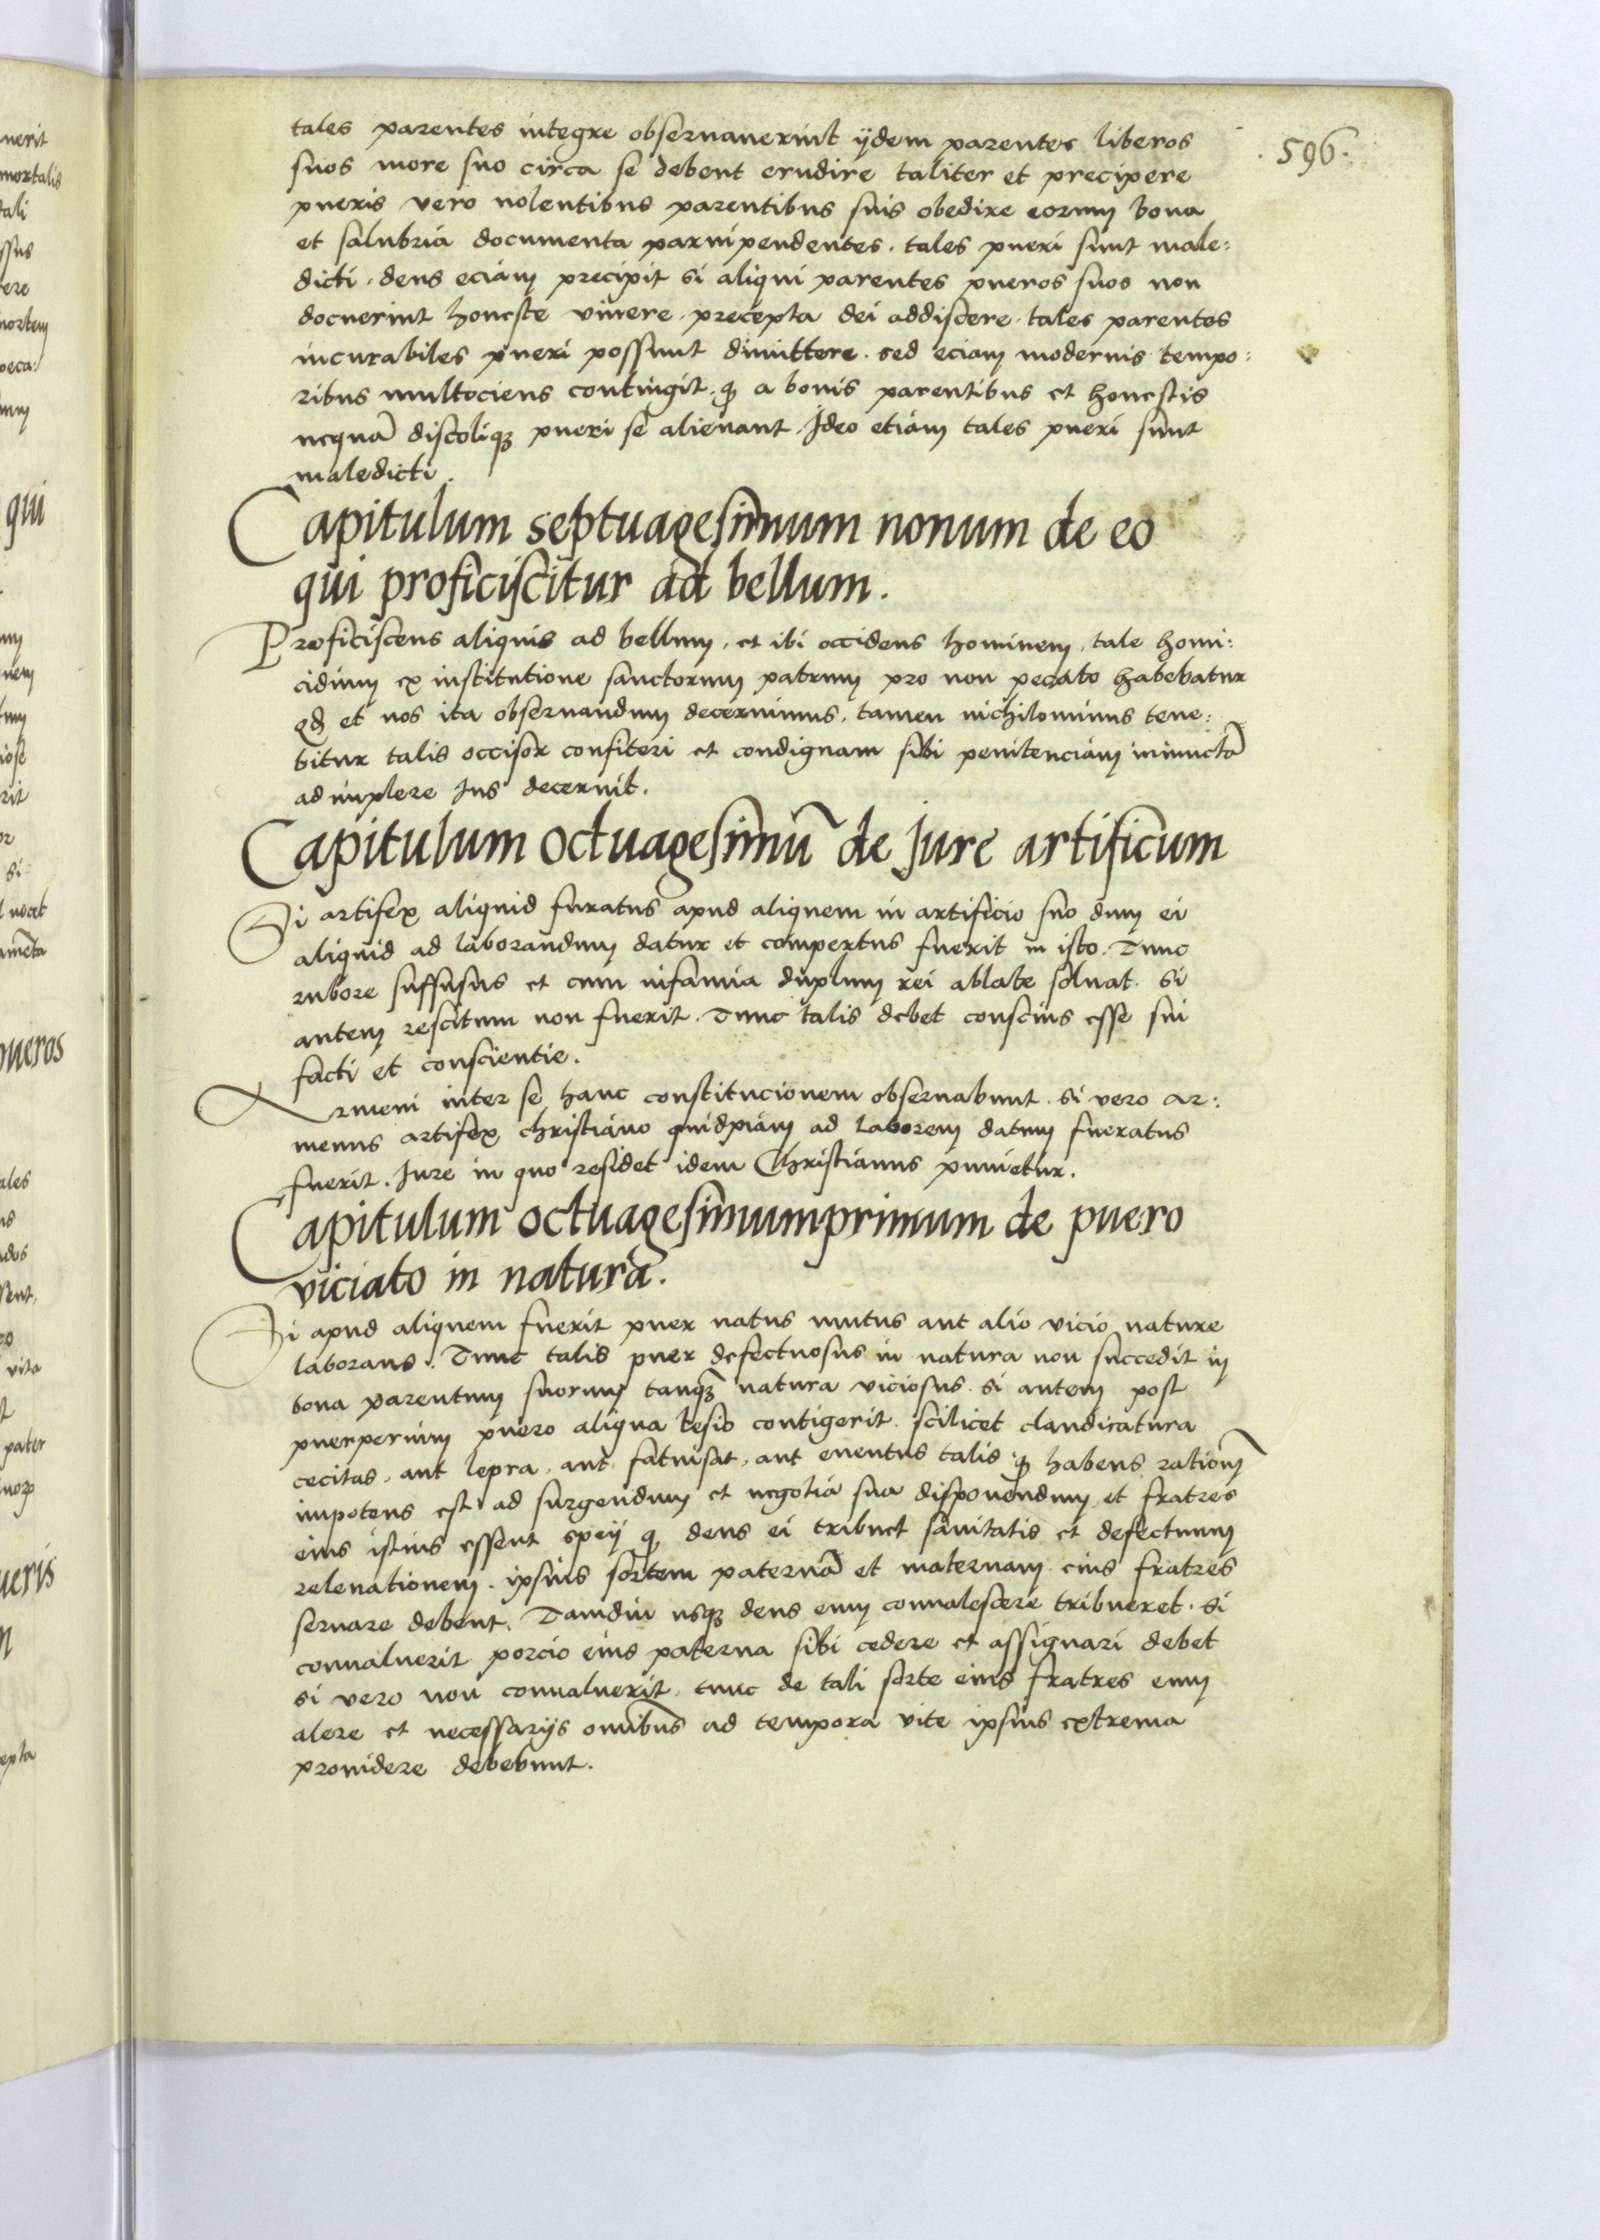 .596.
tales parentes integre obseruauerint ijdem parentes liberos
suos more suo circa se debent erudire taliter et precipere
pueris vero nolentibus parentibus suis obedire eorum bona
et salubria documenta paruipendentes. tales pueri sunt male:
dicti. deus eciam precipit si aliqui parentes pueros suos non
docuerint honeste viuere. precepta dei addiscere. tales parentes
incurabiles pueri possunt dimittere. sed eciam modernis tempo:
ribus multociens contingit. ꝙ a bonis parentibus et honestis
nequā discoliqꝫ pueri se alienant. Ideo etiam tales pueri sunt
maledicti.
Capitulum septuagesimum nonum de eo
qui proficiscitur ad bellum.
Proficiscens aliquis ad bellum, et ibi occidens hominem, tale homi:
cidium ex institutione sanctorum patrum pro non pecato habebatur
qd et nos ita obseruandum decernimus. tamen nichilominus tene:
bitur talis occisor confiteri et condignam sibi penitenciam iniunctā
adimplere Ius decernit.
Capitulum octuagesimū de Jure artificum
Si artifex aliquid furatus apud aliquem in artificio suo dum ei
aliquid ad laborandum datur et compertus fuerit in isto. Tunc
rubore suffusus et cum infamia duplum rei ablate soluat. si
autem rescitum non fuerit. Tunc talis debet conscius esse sui
facti et conscientie.
Armeni inter se hanc constitucionem obseruabunt. si vero ar:
menus artifex christiano quidpiam ad laborem datum fueratus
fuerit. Iure in quo residet idem Christianus punietur.
Capitulum octuagesimumprimum de puero
viciato in natura.
Si apud aliquem fuerit puer natus mutus aut alio vicio nature
laborans. Tunc talis puer defectuosus in natura non succedit in
bona parentum suorum tanqꝫ natura viciosus. si autem post
puerperium puero aliqua lesio contigerit. scilicet claudicatura
cecitas, aut lepra, aut fatuisat, aut euentus talis ꝙ habens rationē
impotens est ad surgendum et negotia sua disponendum et fratres
eius istius essent speij ꝙ deus ei tribuet sanitatis et defectuum
releuationem. ipsius sortem paternā et maternam eius fratres
seruare debent. Tamdiu usqꝫ deus eum conualescere tribueret. si
conualuerit porcio eius paterna sibi cedere et assignari debet
si vero non conualuerit, tunc de tali sorte eius fratres eum
alere et necessarijs omībus ad tempora vite ipsius extrema
prouidere debebunt.